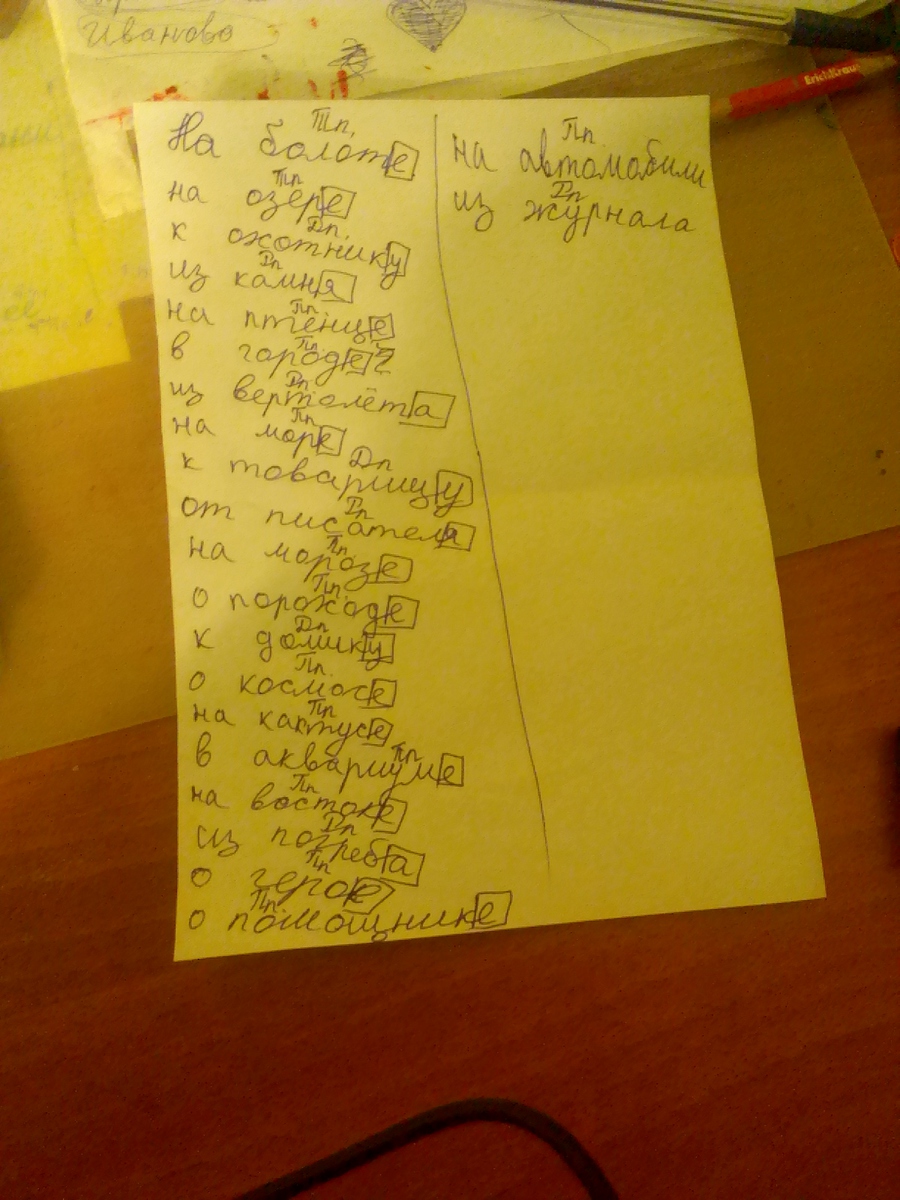 Иваново
ErichKrause
Пп.
На болоте
Пп
на озере
Дп.
к охотнику
Дп
из камня
Пп.
на птенце
Пп.
в городе
Дп
из вертолёта
Пп
на море
Дп
к товарищу
Дп
от писателя
Пп.
на морозе
Пп.
о пороходе
Дп
к домику
Пп.
о космосе
Пп
на кактусе
Пп
в аквариуме
Пп
на востоке
Дп
из погреба
Пп
о герое
Пп.
о помощнике
Пп
на автомобили
Дп
из журнала